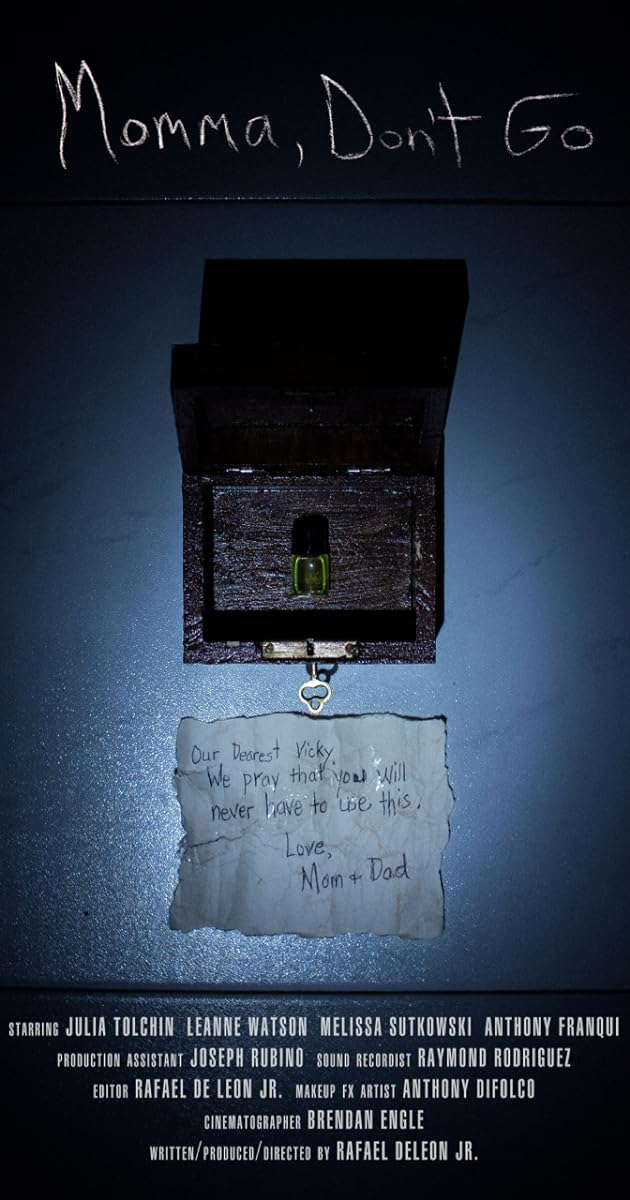 Momma, Don't Go
Our Dearest Vicky,
We pray that you will
never have to use this.
Love,
Mom + Dad
STARRING JULIA TOLCHIN LEANNE WATSON MELISSA SUTKOWSKI ANTHONY FRANQUI
PRODUCTION ASSISTANT JOSEPH RUBINO SOUND RECORDIST RAYMOND RODRIGUEZ
EDITOR RAFAEL DE LEON JR. MAKEUP FX ARTIST ANTHONY DIFOLCO
CINEMATOGRAPHER BRENDAN ENGLE
WRITTEN/PRODUCED/DIRECTED BY RAFAEL DELEON JR.